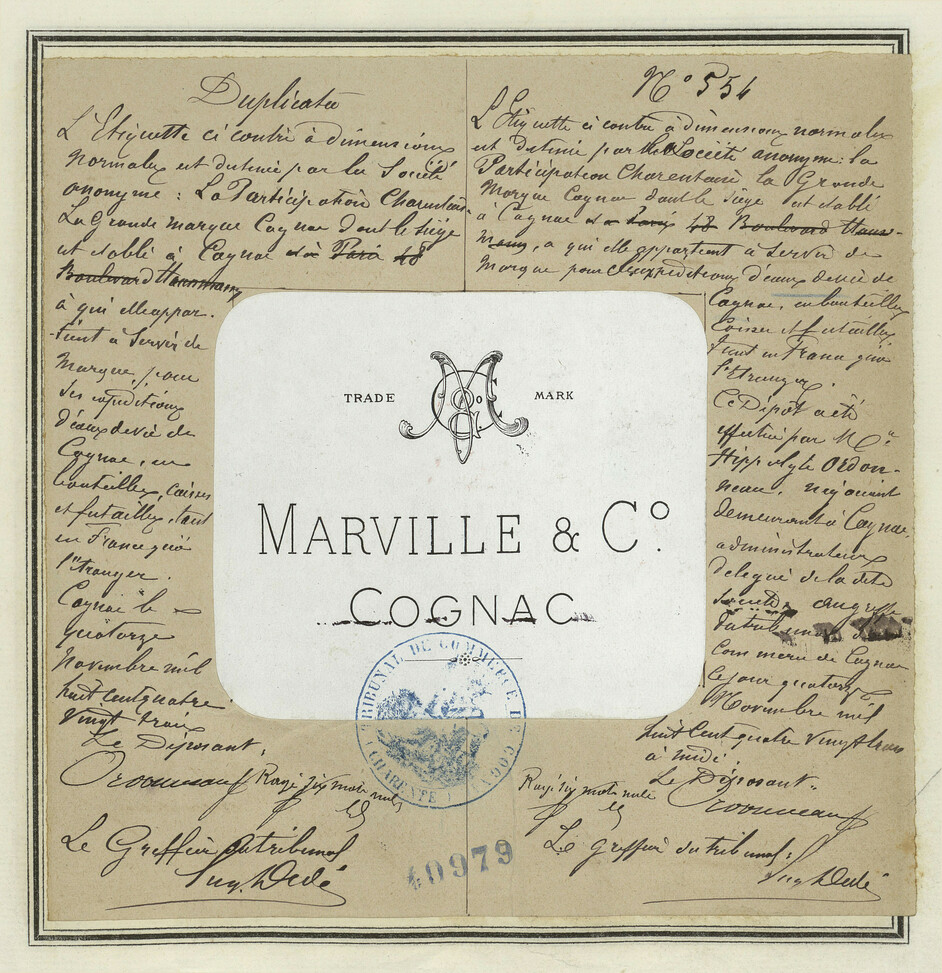 Duplicata
L'Etiquette ci contre à dimensions
normales est destinée par la Société
anonyme : La Participation Charentaise
La Grande marque Cognac dont le siège
est établi à Cognac et à Paris 48
Boulevard Haussmann
à qui elle appar-
-tient à servir de
Marque, pour
ses expéditions
d'eaux de vie de
Cognac, en
bouteilles, caisses
et futailles, tant
en France qu'à
l'étranger.
Cognac le
quatorze
novembre mil
huit cent quatre
vingt trois
Le Déposant,
Rayé six mots nuls
Le Greffier du tribunal
N° 554
L'Etiquette ci contre à dimensions normales
est destinée par la Société anonyme : la
Participation Charentaise la Grande
Marque Cognac dont le siège est établi
à Cognac et à Paris 48 Boulevard Hauss-
mann, à qui elle appartient à servir de
Marque pour ses expéditions d'eaux de vie de
Cognac, en bouteilles
Caisses et futailles
tant en France qu'à
l'Etranger.
Ce Dépôt a été
effectué par Mr
Hippolyte Ordon-
neau, négociant
demeurant à Cognac,
administrateur
délégué de la dite
société, au greffe
du tribunal de
Commerce de Cognac
le jour quatorze
Novembre mil
huit cent quatre vingt trois
à midi
Le Déposant.
Rayé six mots nuls
Le greffier du tribunal :
TRADE MARK
MARVILLE & Cº.
COGNAC
TRIBUNAL DE COMMERCE DE COGNAC
(CHARENTE)
40979